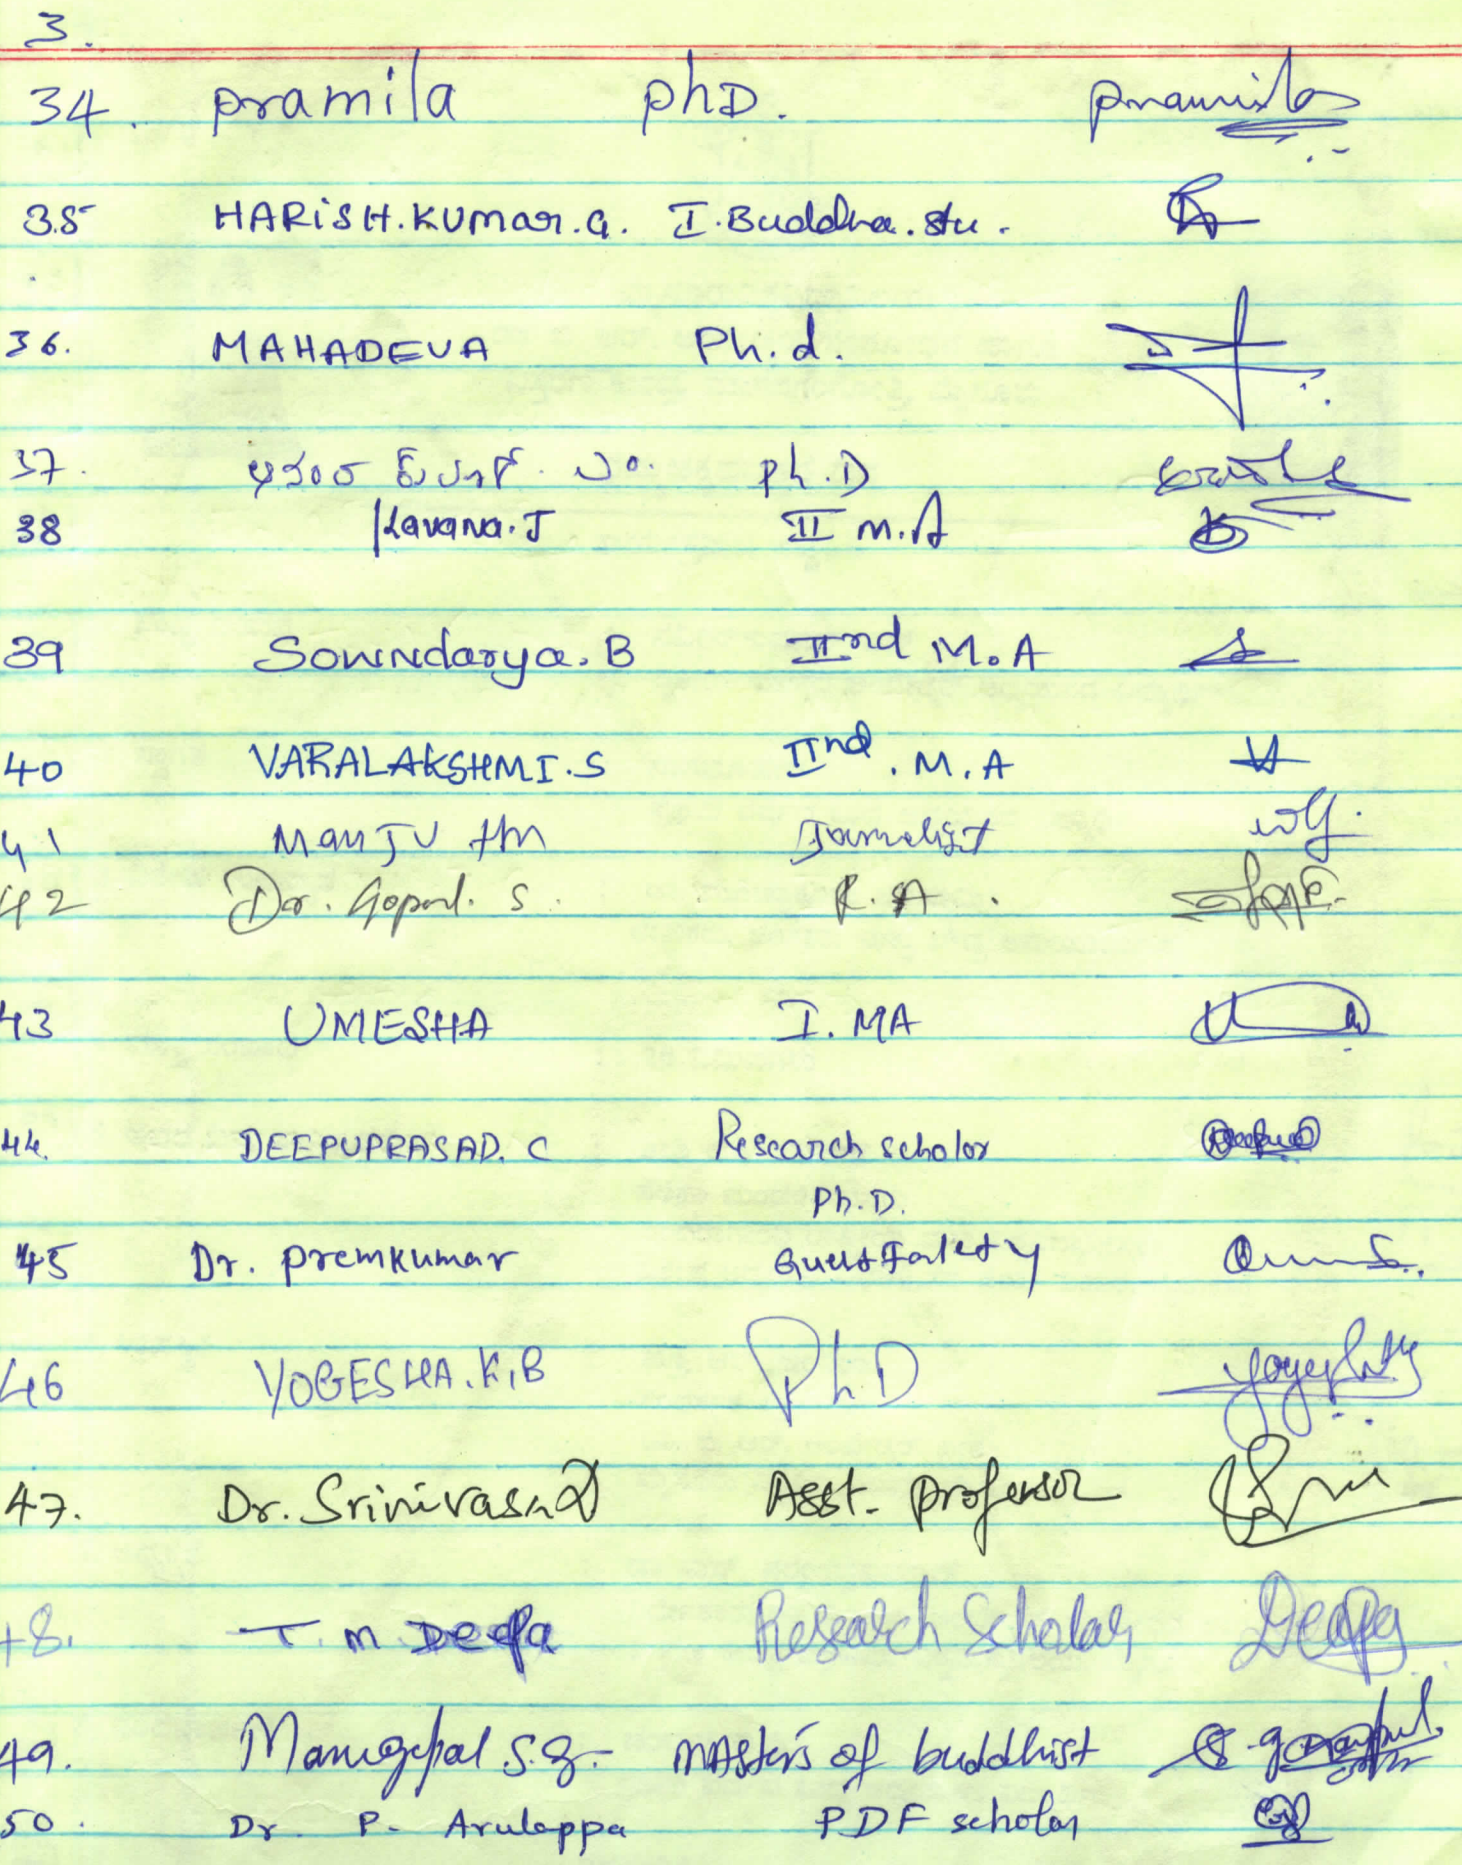 3.
34. pramila phD. pramila
35 HARISH.KUMAR.G. I.Buddha.stu.
36. MAHADEVA Ph.d.
37. ph.D
38 Kavana.J II M.A
39 Sowndarya.B IInd M.A
40 VARALAKSHMI.S IInd.M.A
41 ManJU HM
42 Dr. Gopal. S. R.A.
43 UMESHA I.MA
44. DEEPUPRASAD. C Research scholor Deepu
Ph.D.
45 Dr. Premkumar
46 YOGESHA.K.B Ph.D
47. Dr. Srinivasa Asst. professor
48. T. m Deepa Research Scholar Deepa
49. S.G. MAsters of buddhist
50. Dr P. Arulappa PDF scholar